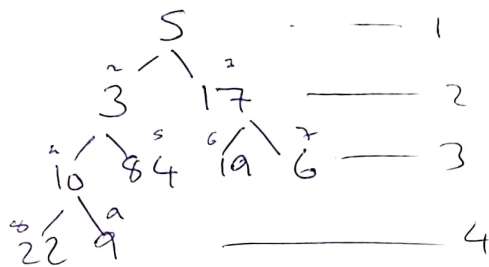 5 1
2 3
3 17 2
4 5 6 7
10 84 19 6 3
8 9
22 9 4